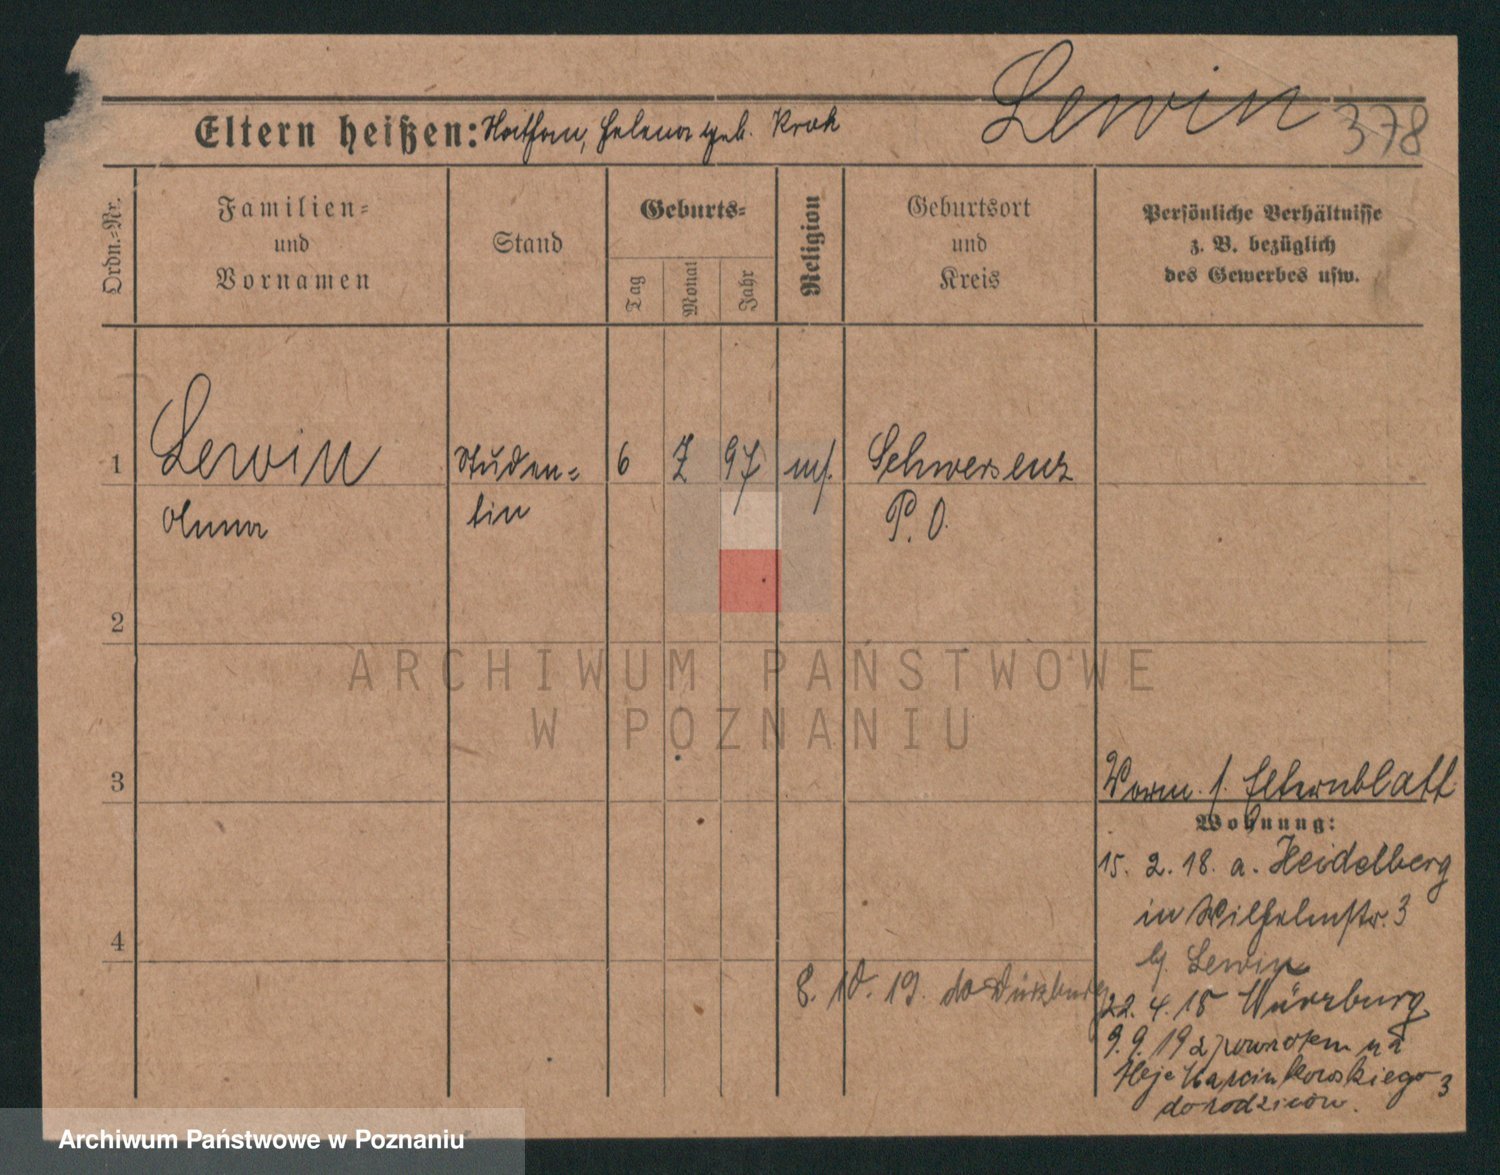 Lewin
378
Eltern heißen: Nathan, Helena geb. Krak
Ordn.=Nr.
Familien=
und
Vornamen
Stand
Geburts=
Tag
Monat
Jahr
Religion
Geburtsort
und
Kreis
Persönliche Verhältnisse
z. B. bezüglich
des Gewerbes usw.
1
Lewin
Anna
Studen=
tin
6
7
97
Schwersenz
P. O.
2
ARCHIWUM PAŃSTWOWE
W POZNANIU
3
Vorm. s. Elternblatt
Wohnung:
15. 2. 18. a. Heidelberg
in Wilhelmstr. 3
b/. Lewin
4
8. 10. 19. do Würzburg
22. 4. 18 Würzburg
9. 9. 19 z powrotem na
Aleje Marcinkowskiego 3
do rodziców.
Archiwum Państwowe w Poznaniu